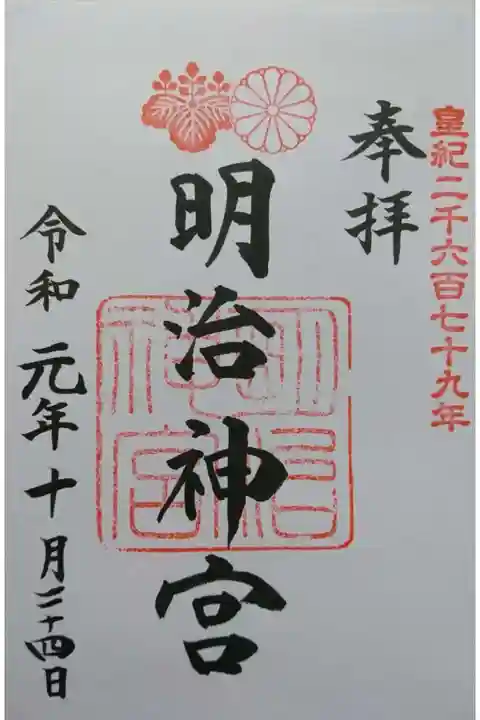 皇紀二千六百七十九年
奉拝
明治神宮
明治神宮
令和元年十月二十四日